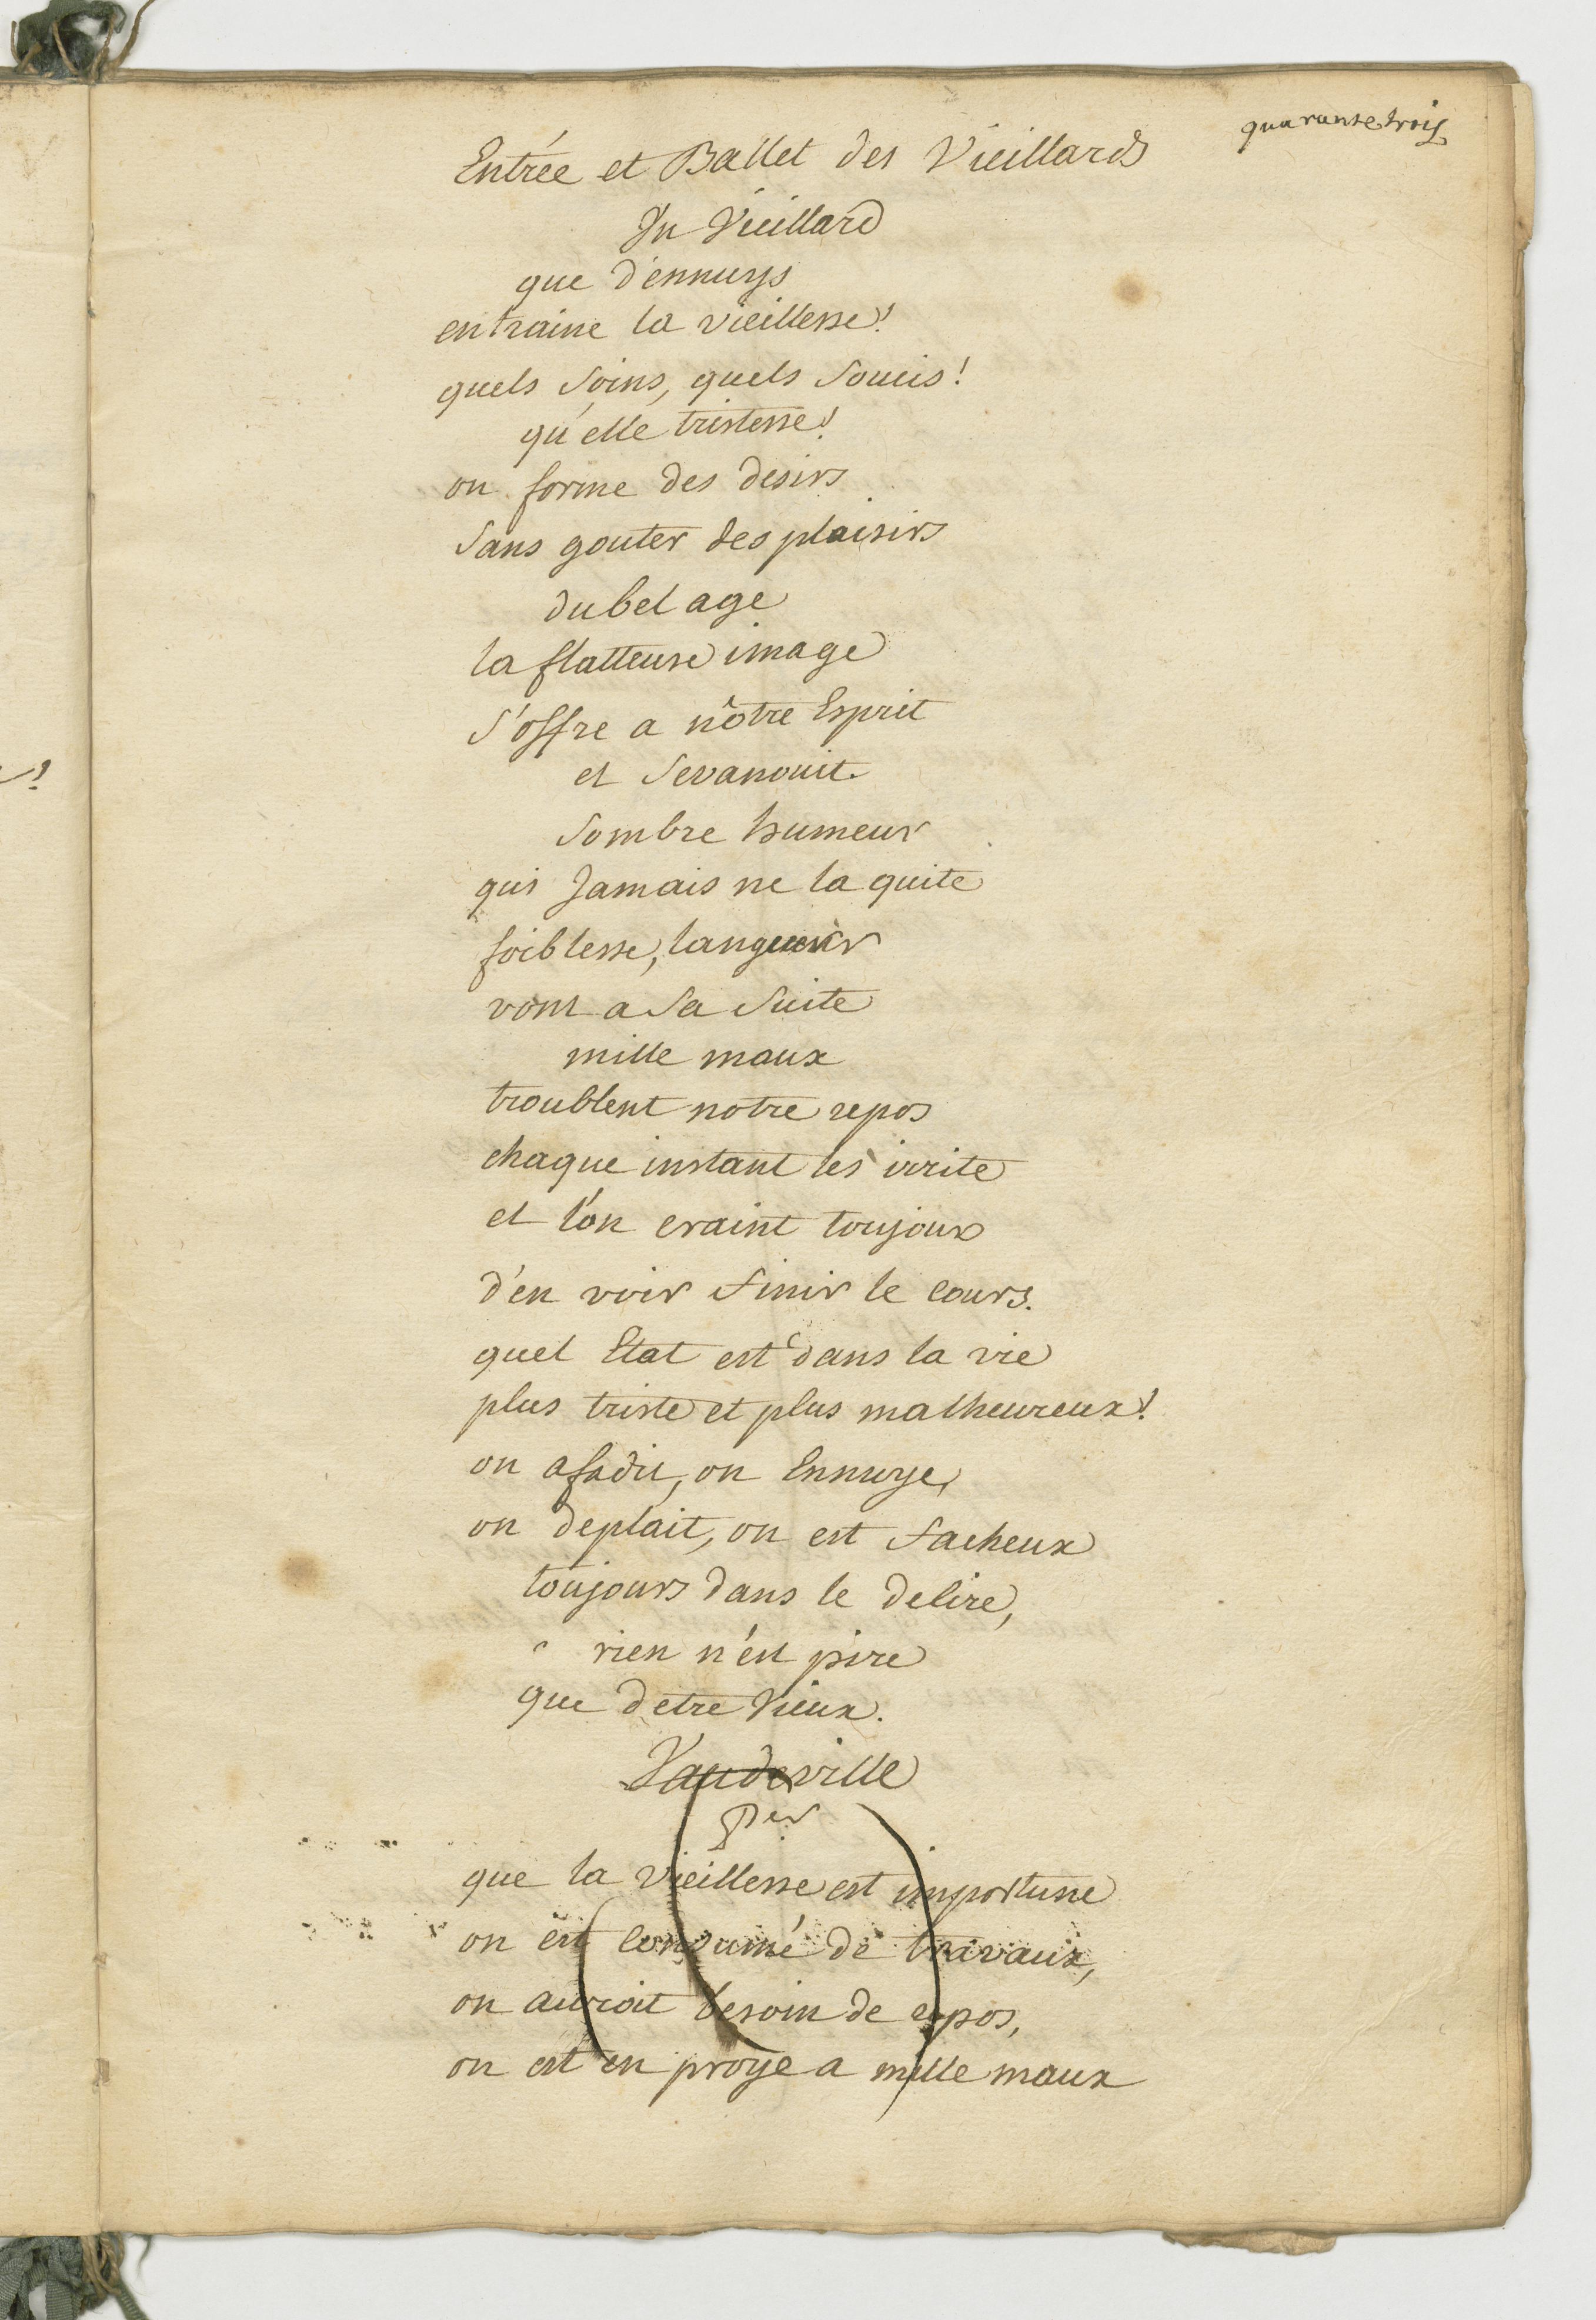 quarante trois
Entrée et Ballet des Vieillards
Un Vieillard
que d'ennuys
entraine la vieillesse!
quels soins, quels soucis!
qu'elle tristesse!
on forme des desirs
sans gouter des plaisirs
du bel age
la flatteuse image
s'offre a nôtre Esprit
et sevanouit.
sombre humeur
qui Jamais ne la quite
foiblesse, langueur
vont a sa suite
mille maux
troublent notre repos
chaque instant les irrite
et l'on craint toujours
d'en voir finir le cours.
quel Etat est dans la vie
plus triste et plus malheureux!
on afadit, on Ennuye,
on deplait, on est facheux
toujours dans le delire,
rien n'est pire
que detre Vieux.
Vaudeville
Per
que la vieillesse est importune
on est consumé de travaux,
on auroit besoin de repos,
on est en proye a mille maux